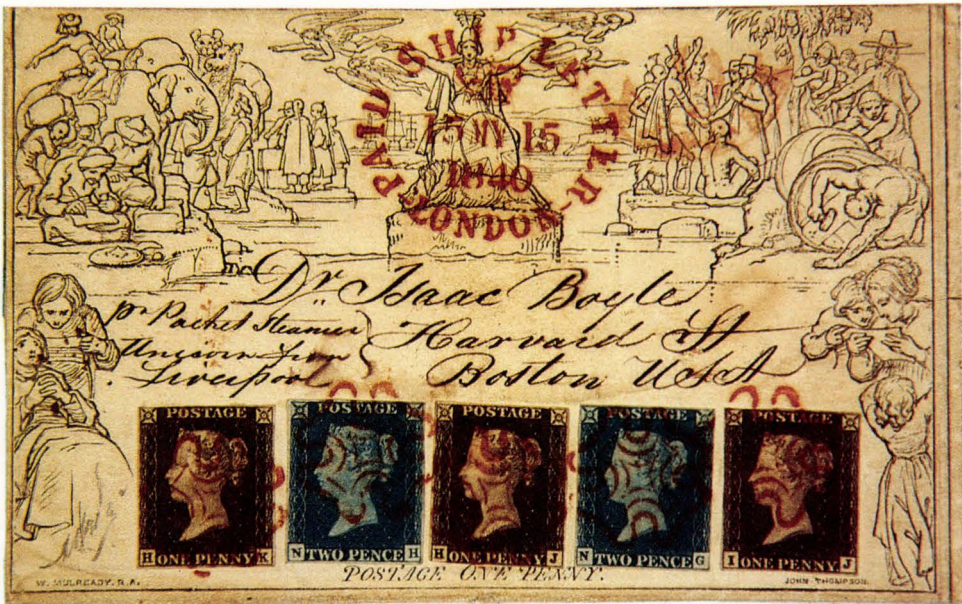 PAID SHIP LETTER LONDON
15 MY 15
1840
Dr. Isaac Boyle
Harvard St
Boston USA
pr Packet Steamer
Unicorn from
Liverpool
POSTAGE
H ONE PENNY K
POSTAGE
N TWO PENCE H
POSTAGE
H ONE PENNY J
POSTAGE
N TWO PENCE G
POSTAGE
I ONE PENNY J
POSTAGE ONE PENNY.
W. MULREADY. R.A.
JOHN THOMPSON.